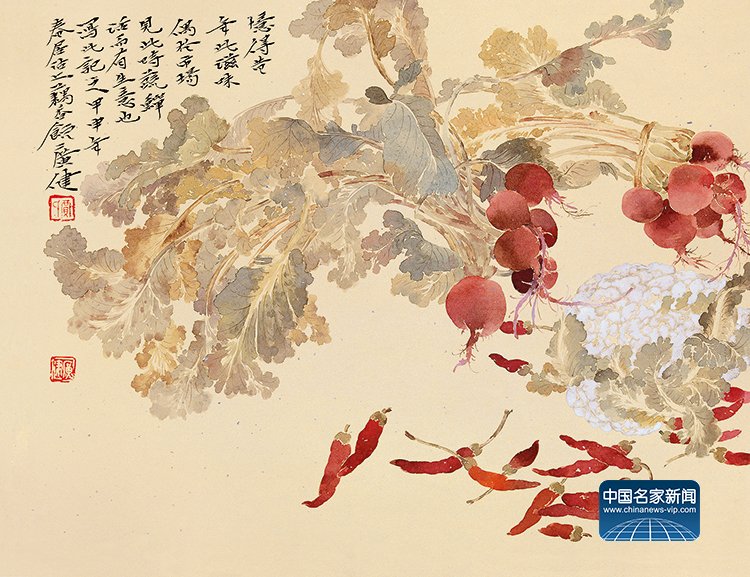 憶得當
年此滋味
偶於市場
見此時蔬鮮
活而有生意也
寫此記之甲申年
春 藕香館廣健
中国名家新闻
www.chinanews-vip.com